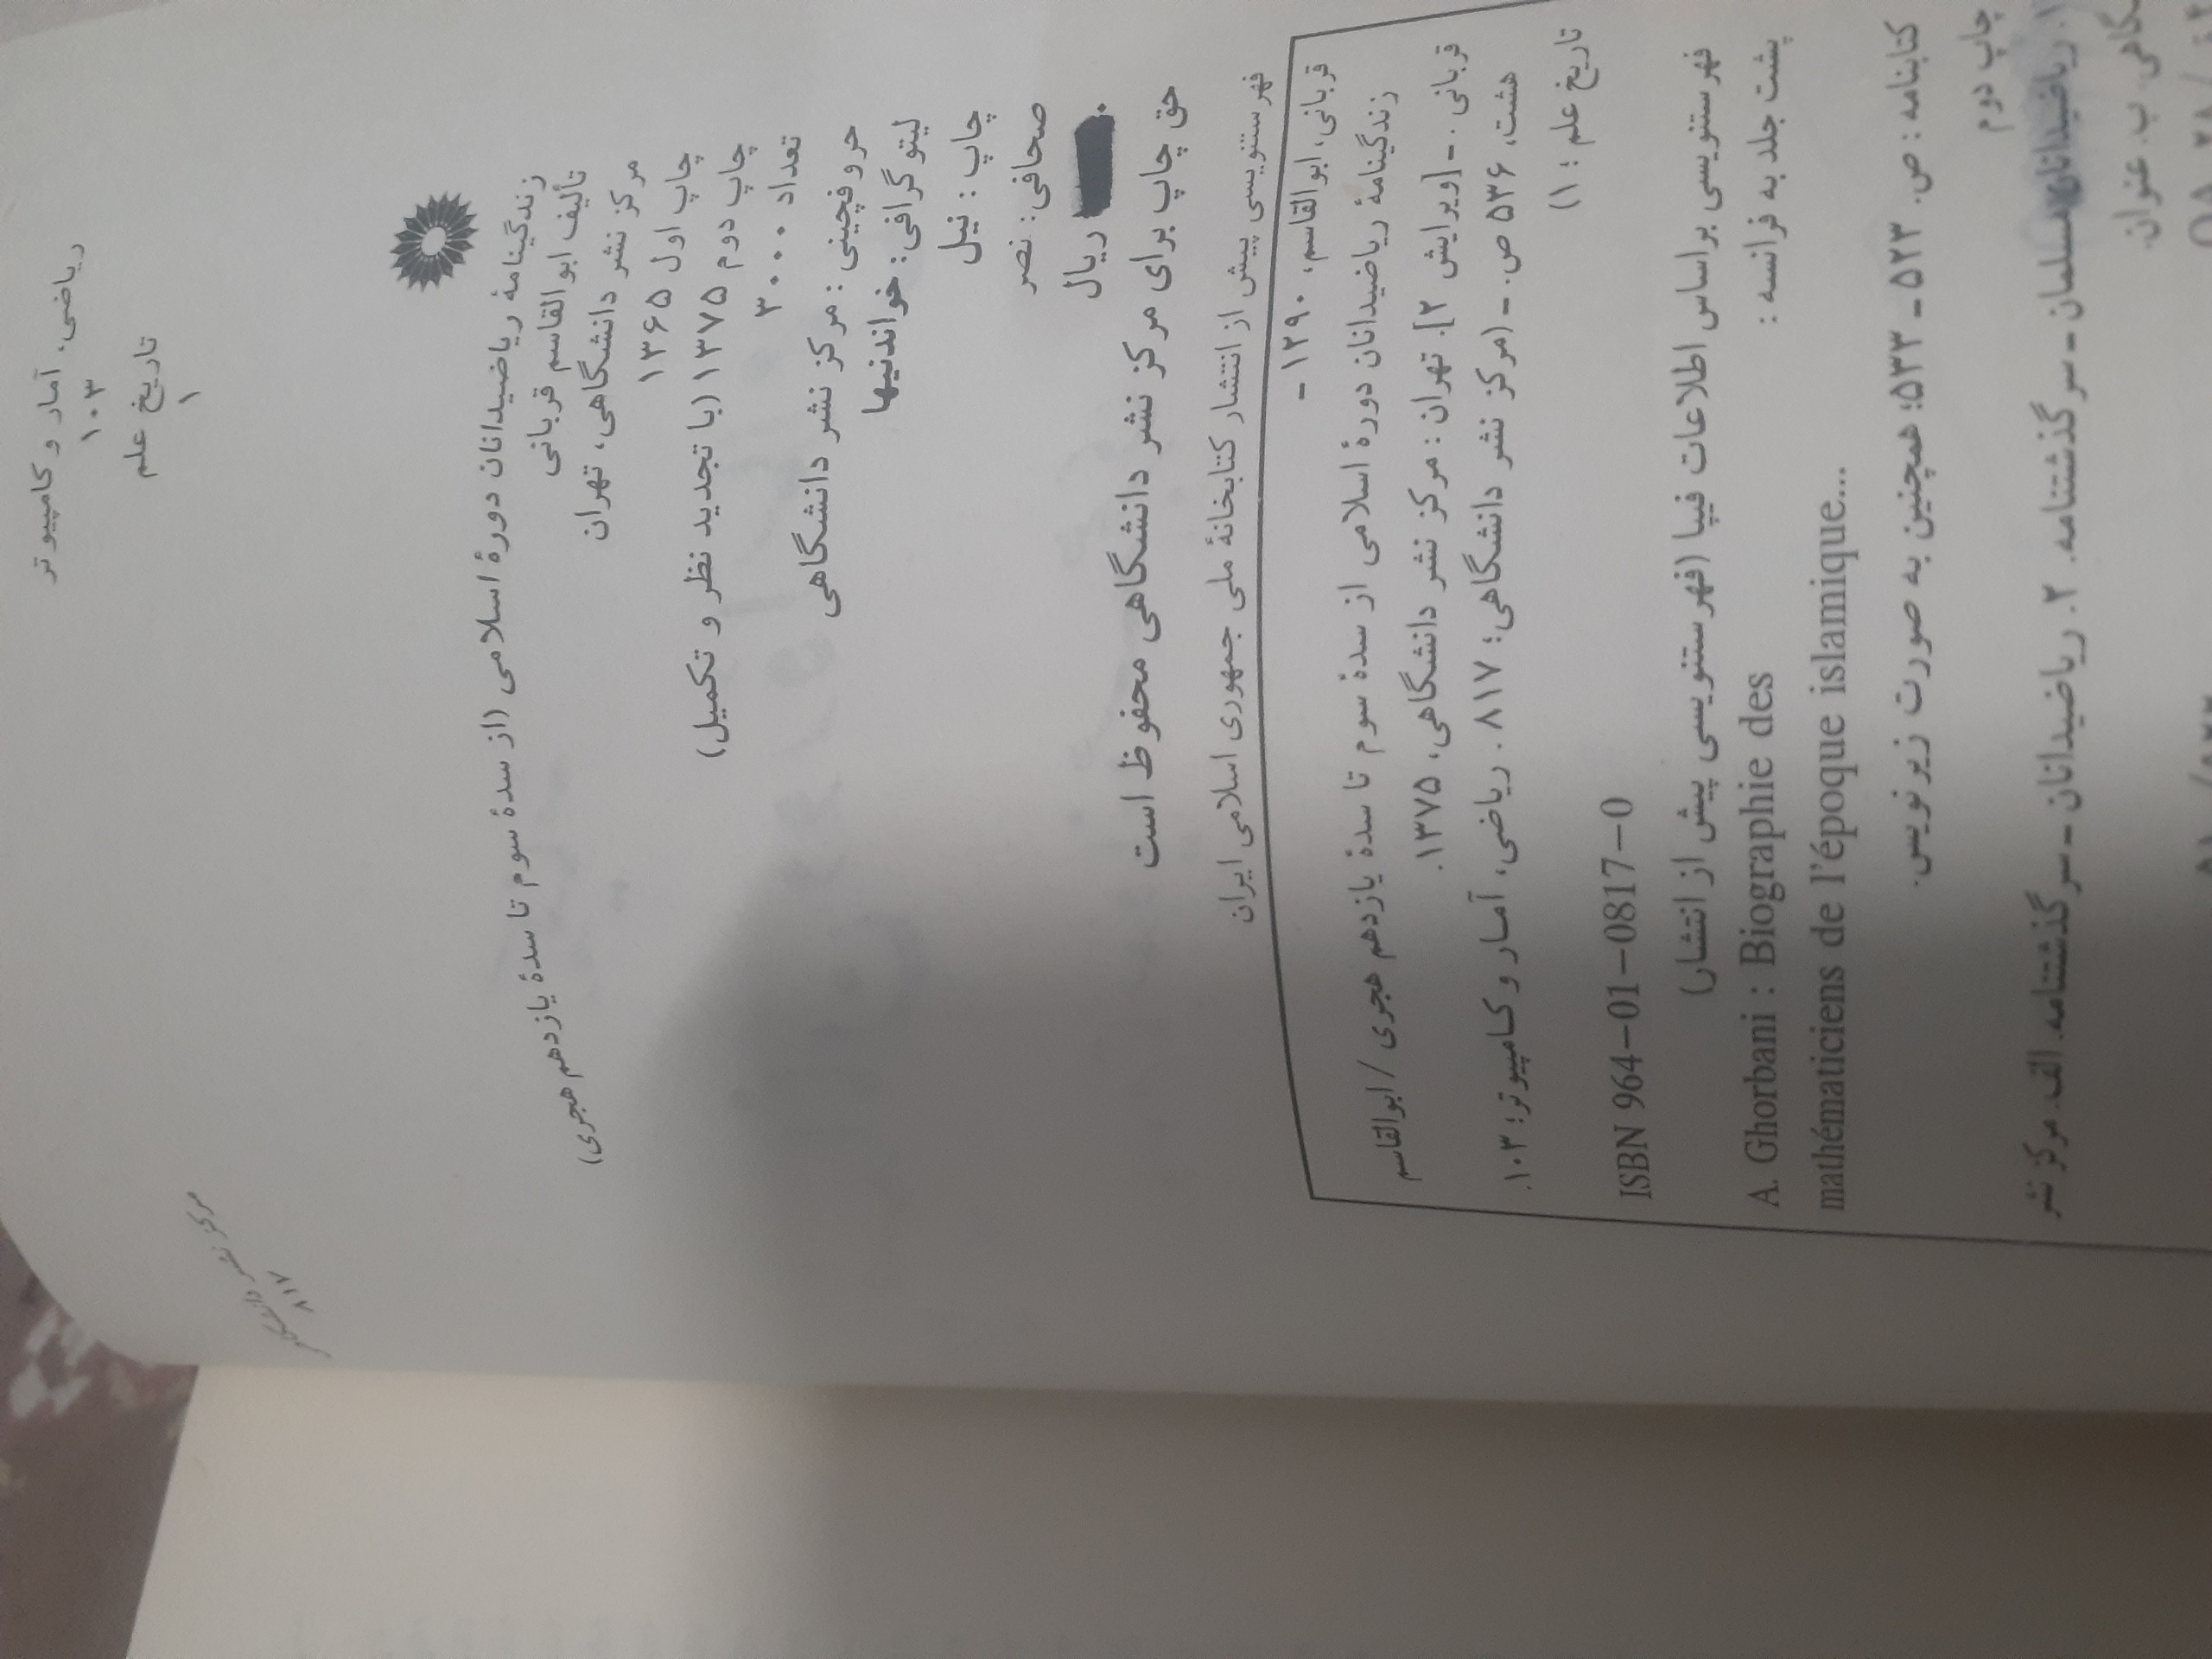 ریاضی، آمار و کامپیوتر
۱۰۳
تاریخ علم
۱
مرکز نشر دانشگاهی
۸۱۷
زندگینامهٔ ریاضیدانان دورهٔ اسلامی (از سدهٔ سوم تا سدهٔ یازدهم هجری)
تألیف ابوالقاسم قربانی
مرکز نشر دانشگاهی، تهران
چاپ اول ۱۳۶۵
چاپ دوم ۱۳۷۵ (با تجدید نظر و تکمیل)
تعداد ۳۰۰۰
حروفچینی: مرکز نشر دانشگاهی
لیتوگرافی: خواندنیها
چاپ: نیل
صحافی: نصر
ریال
حق چاپ برای مرکز نشر دانشگاهی محفوظ است
فهرستنویسی پیش از انتشار کتابخانهٔ ملی جمهوری اسلامی ایران
قربانی، ابوالقاسم، ۱۲۹۰ -
زندگینامهٔ ریاضیدانان دورهٔ اسلامی از سدهٔ سوم تا سدهٔ یازدهم هجری / ابوالقاسم
قربانی. - [ویرایش ۲]. تهران: مرکز نشر دانشگاهی، ۱۳۷۵.
هشت، ۵۳۶ ص. - (مرکز نشر دانشگاهی؛ ۸۱۷. ریاضی، آمار و کامپیوتر؛ ۱۰۳.
تاریخ علم؛ ۱)
ISBN 964-01-0817-0
فهرستنویسی براساس اطلاعات فیپا (فهرستنویسی پیش از انتشار)
پشت جلد به فرانسه:
A. Ghorbani : Biographie des
mathématiciens de l'époque islamique...
کتابنامه: ص. ۵۲۳ - ۵۳۳؛ همچنین به صورت زیرنویس.
چاپ دوم
۱. ریاضیدانان مسلمان - سرگذشتنامه. ۲. ریاضیدانان - سرگذشتنامه. الف. مرکز نشر
ب. عنوان.